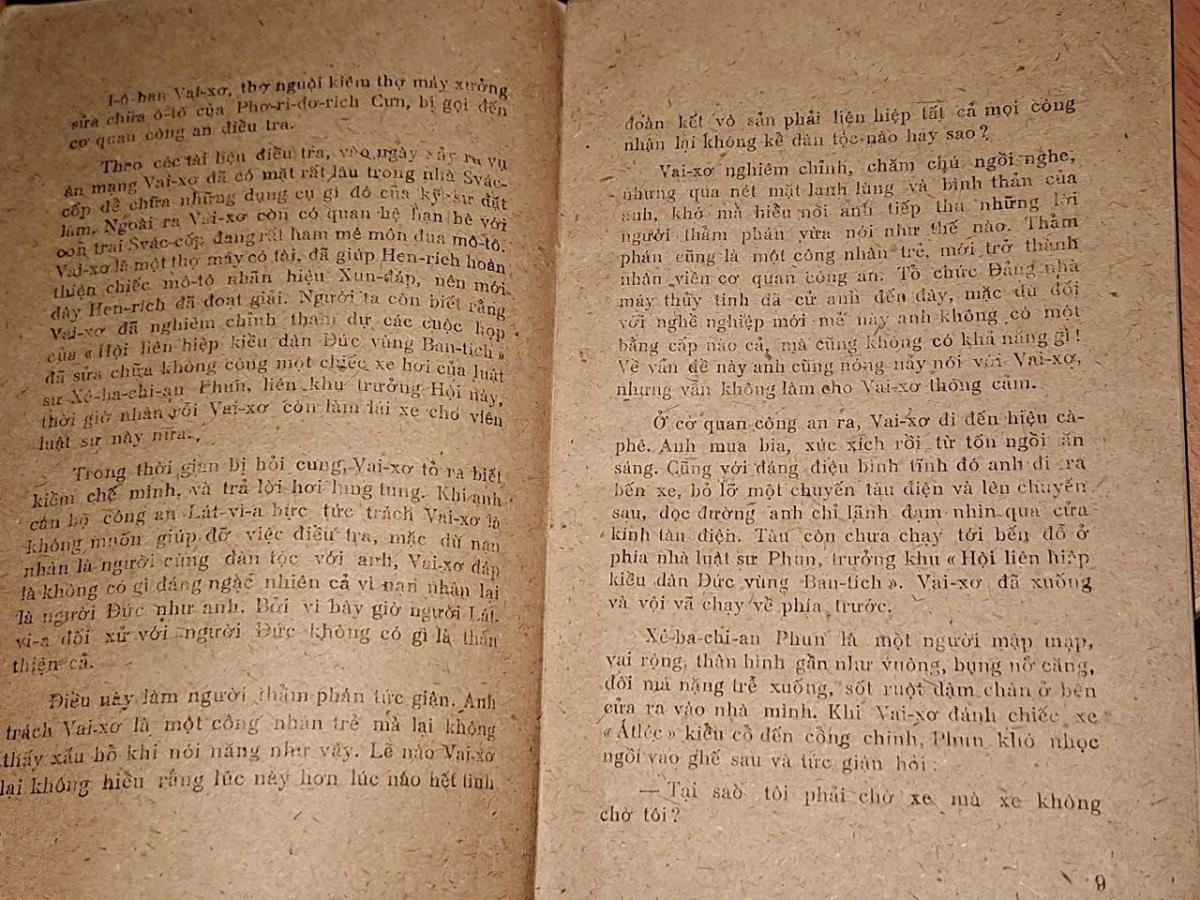 I-ô-han Vai-xơ, thợ nguội kiêm thợ máy xưởng
sửa chữa ô-tô của Phơ-ri-đơ-rich Cun, bị gọi đến
cơ quan công an điều tra.
Theo các tài liệu điều tra, vào ngày xảy ra vụ
án mạng Vai-xơ đã có mặt rất lâu trong nhà Svác-
cốp để chữa những dụng cụ gì đó của kỹ sư đặt
làm. Ngoài ra Vai-xơ còn có quan hệ bạn bè với
con trai Svác-cốp đang rất ham mê môn đua mô-tô.
Vai-xơ là một thợ máy có tài, đã giúp Hen-rich hoàn
thiện chiếc mô-tô nhãn hiệu Xun-đáp, nên mới
đây Hen-rich đã đoạt giải. Người ta còn biết rằng
Vai-xơ đã nghiêm chỉnh tham dự các cuộc họp
của « Hội liên hiệp kiều dân Đức vùng Ban-tích »
đã sửa chữa không công một chiếc xe hơi của luật
sư Xê-ba-chi-an Phun, liên khu trưởng Hội này,
thời giờ nhàn rỗi Vai-xơ còn làm lái xe cho viên
luật sư này nữa.
Trong thời gian bị hỏi cung, Vai-xơ tỏ ra biết
kiềm chế mình, và trả lời hơi lúng túng. Khi anh
cán bộ công an Lát-vi-a bực tức trách Vai-xơ là
không muốn giúp đỡ việc điều tra, mặc dù nạn
nhân là người cùng dân tộc với anh, Vai-xơ đáp
là không có gì đáng ngạc nhiên cả vì nạn nhân lại
là người Đức như anh. Bởi vì bây giờ người Lát-
vi-a đối xử với người Đức không có gì là thân
thiện cả.
Điều này làm người thẩm phán tức giận. Anh
trách Vai-xơ là một công nhân trẻ mà lại không
thấy xấu hổ khi nói năng như vậy. Lẽ nào Vai-xơ
lại không hiểu rằng lúc này hơn lúc nào hết tình
đoàn kết vô sản phải liên hiệp tất cả mọi công
nhân lại không kể dân tộc nào hay sao?
Vai-xơ nghiêm chỉnh, chăm chú ngồi nghe,
nhưng qua nét mặt lạnh lùng và bình thản của
anh, khó mà hiểu nổi anh tiếp thu những lời
người thẩm phán vừa nói như thế nào. Thẩm
phán cũng là một công nhân trẻ, mới trở thành
nhân viên cơ quan công an. Tổ chức Đảng nhà
máy thủy tinh đã cử anh đến đây, mặc dù đối
với nghề nghiệp mới mẻ này anh không có một
bằng cấp nào cả, mà cũng không có khả năng gì!
Về vấn đề này anh cũng nóng nảy nói với Vai-xơ,
nhưng vẫn không làm cho Vai-xơ thông cảm.
Ở cơ quan công an ra, Vai-xơ đi đến hiệu cà-
phê. Anh mua bia, xúc xích rồi từ tốn ngồi ăn
sáng. Cũng với dáng điệu bình tĩnh đó anh đi ra
bến xe, bỏ lỡ một chuyến tàu điện và lên chuyến
sau, dọc đường anh chỉ lãnh đạm nhìn qua cửa
kính tàu điện. Tàu còn chưa chạy tới bến đỗ ở
phía nhà luật sư Phun, trưởng khu « Hội liên hiệp
kiều dân Đức vùng Ban-tích ». Vai-xơ đã xuống
và vội vã chạy về phía trước.
Xê-ba-chi-an Phun là một người mập mạp,
vai rộng, thân hình gần như vuông, bụng nở căng,
đôi má nặng trễ xuống, sốt ruột dậm chân ở bên
cửa ra vào nhà mình. Khi Vai-xơ đánh chiếc xe
« Átléc » kiểu cổ đến cổng chính, Phun khó nhọc
ngồi vào ghế sau và tức giận hỏi :
— Tại sao tôi phải chờ xe mà xe không
chờ tôi?
9